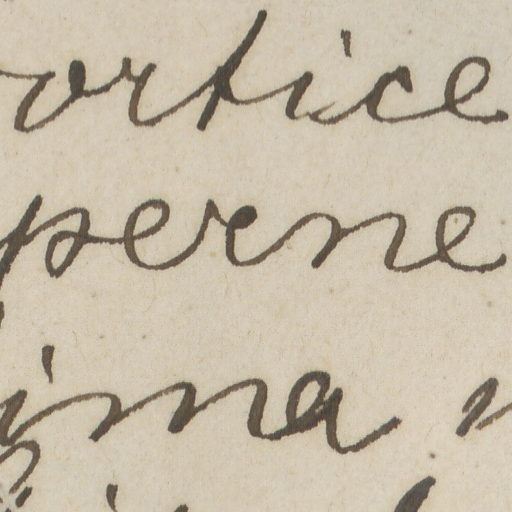 ortice
perne
ima